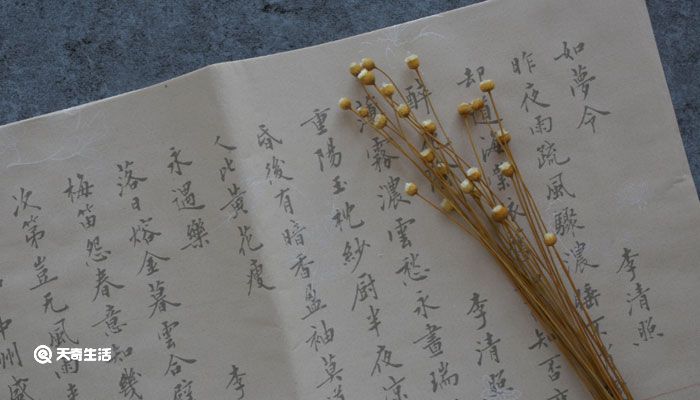 如夢令
李清照
昨夜雨疏風驟濃睡不
却道海棠依舊
知否應
醉
李清照
薄霧濃雲愁永晝瑞
重陽玉枕紗厨半夜凉
昏後有暗香盈袖莫
人比黃花瘦
李
永遇樂
落日熔金暮雲合璧
梅笛怨春意知幾
次第豈无風雨
中州盛
天奇生活